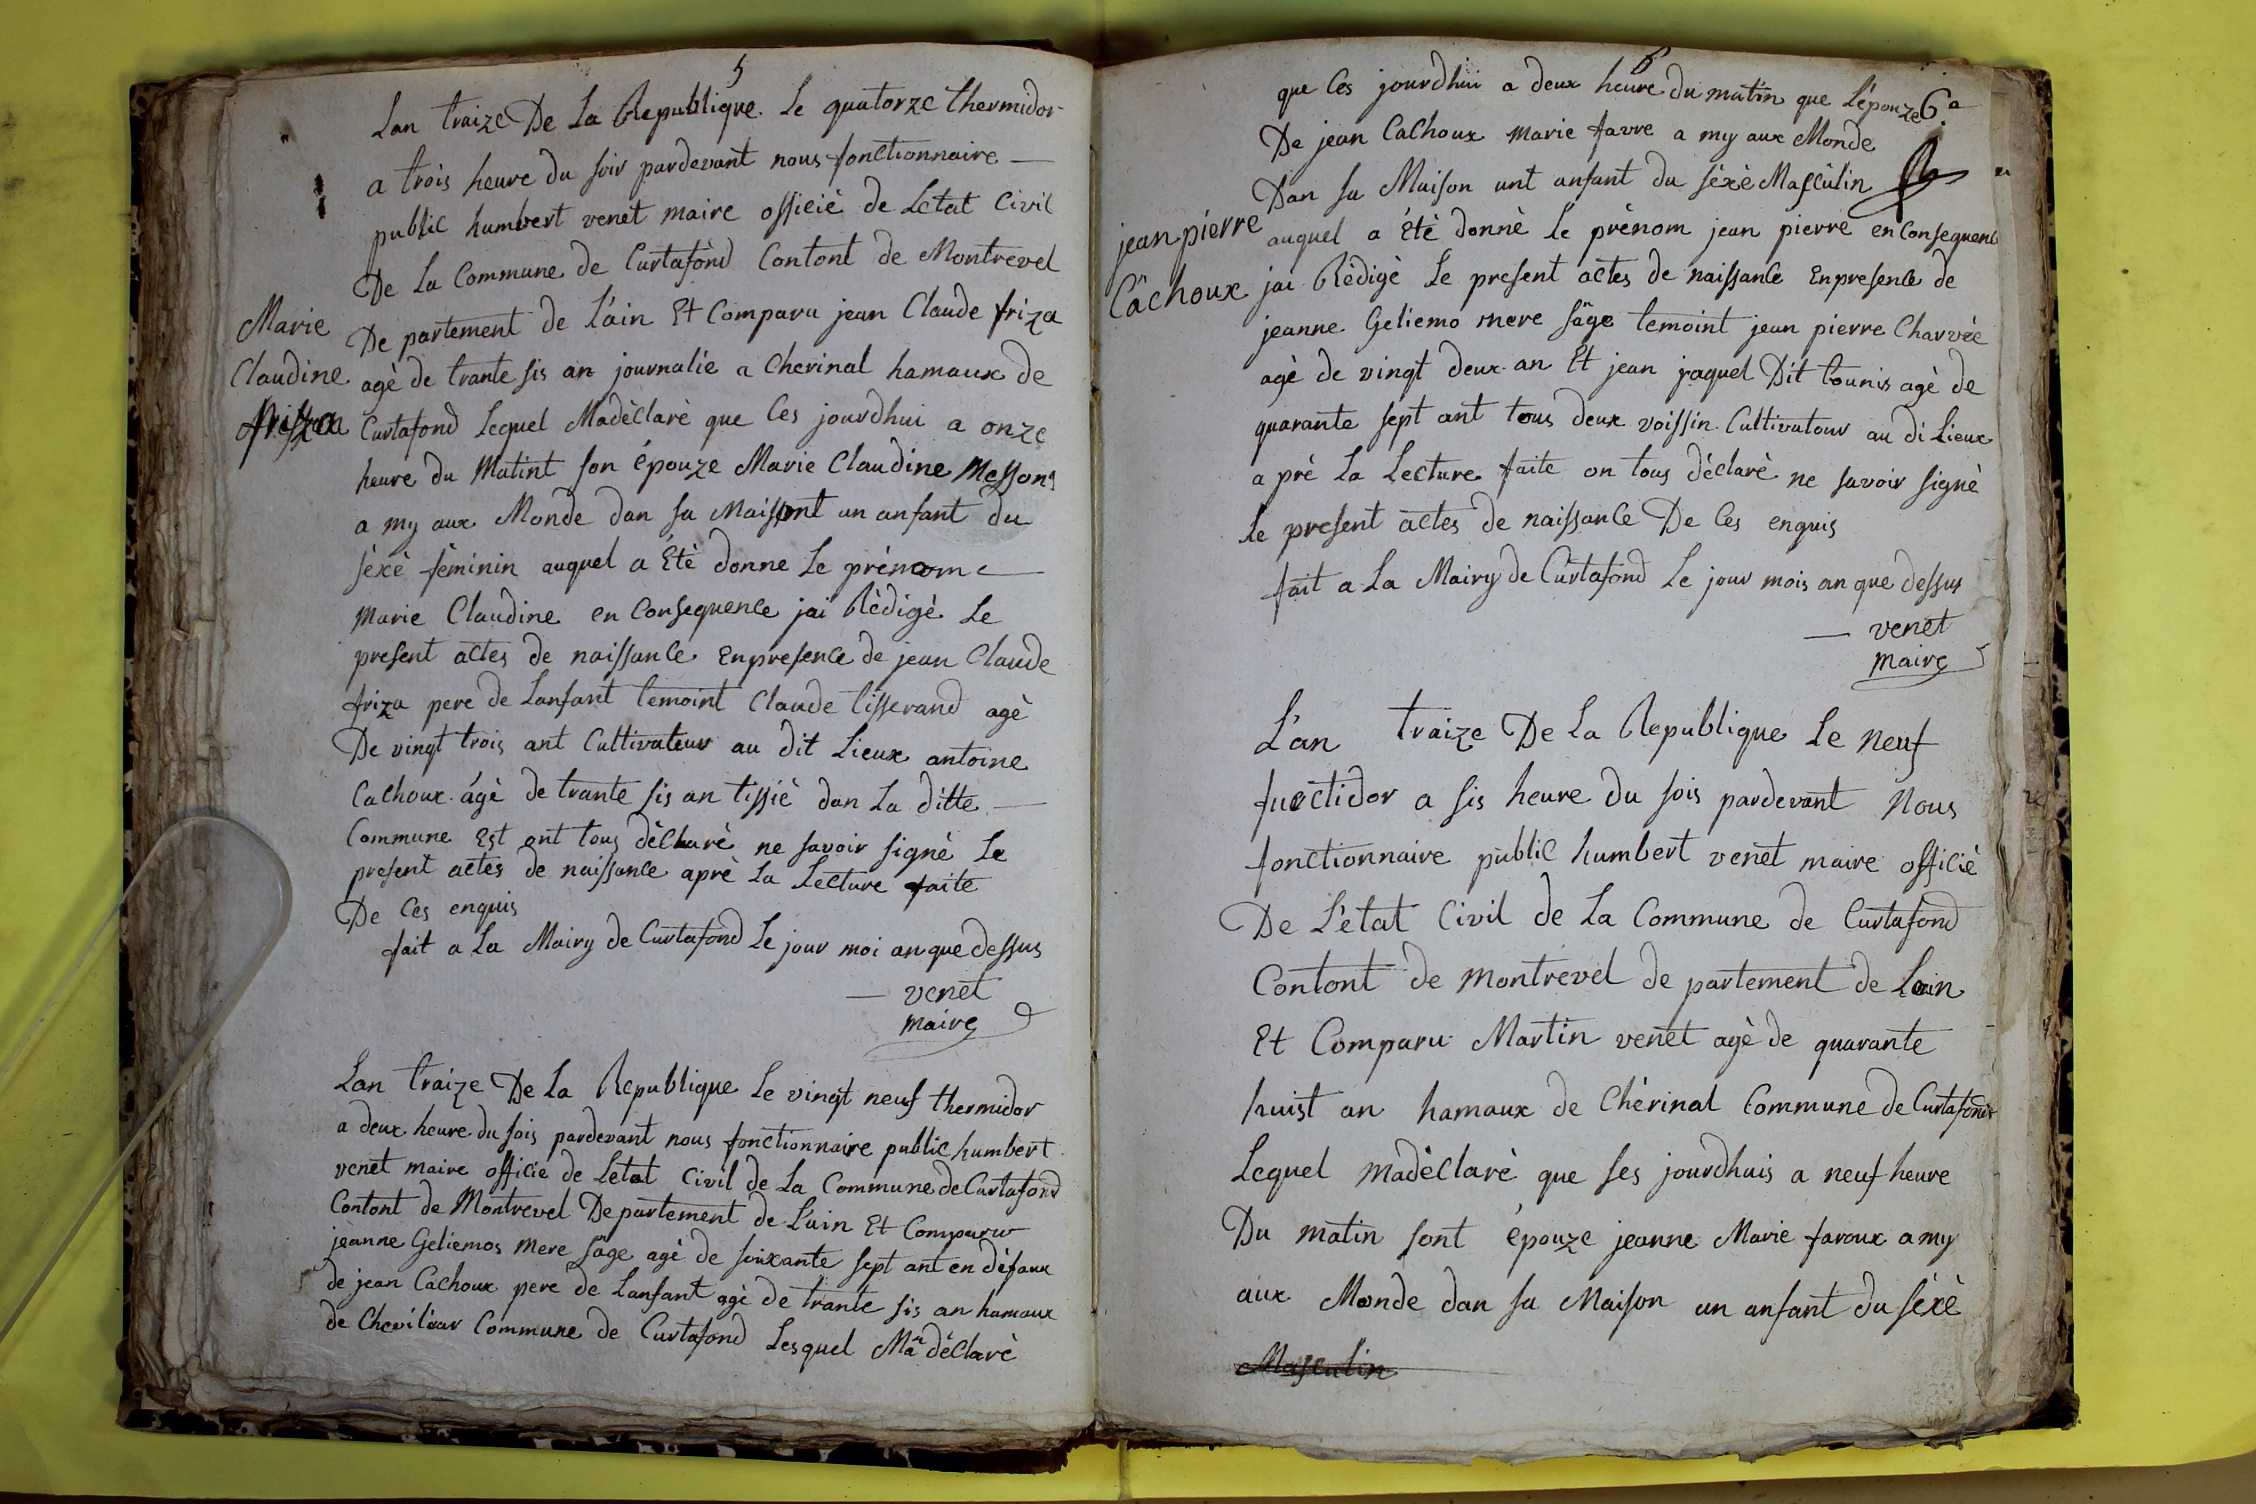 5
Lan traize De La Republique. Le quatorze thermidor
a trois heure du soir pardevant nous fonctionnaire
public humbert venet maire officié de Letat Civil
De La Commune de Curtafond Contont de Montrevel
De partement de L'ain Et Comparu jean Claude friza
Marie
Claudine
frizza
agè de trante sis an journalié a Cherinal hamaux de
Curtafond Lequel Madèclarè que Ces jourdhui a onze
heure du Matint son épouze Marie Claudine Messont
a my aux Monde dan sa Maisont un anfant du
séxè fèminin auquel a Étè donne Le prénom
Marie Claudine en Consequence jai Rèdigè Le
present actes de naissance Enpresence de jean Claude
friza pere de Lanfant temoint Claude tisserand agè
De vingt trois ant Cultivateur au dit Lieux antoine
Cachoux âgè de trante sis an tissiè dan La ditte
Commune Est ont tous dèclarè ne savoir signè Le
present actes de naissance aprè La Lecture faite
De Ces enquis
fait a La Mairy de Curtafond Le jour moi an que dessus
venet
maire
Lan traize De La Republique Le vingt neuf thermidor
a deux heure du sois pardevant nous fonctionnaire public humbert
venet maire officie de Letat Civil de La Commune de Curtafond
Contont de Montrevel De partement de L'ain Et Comparu
jeanne Geliemos mere sage agè de soixante sept ant en dèfaux
de jean Cachoux pere de Lanfant agè de trante sis an hamaux
de Commune de Curtafond Lesquel Ma dèclarè
6
6.e
que Ces jourdhui a deux heure du matin que L'épouze
De jean Cachoux marie favre a my aux Monde
Dan sa Maison unt anfant du séxè Masculin
jean pierre
Cachoux
auquel a Étè donnè Le prènom jean pierre en Consequence
jai Rèdigè Le present actes de naissance Enpresence de
jeanne Geliemo mere sage temoint jean pierre Charvée
agè de vingt deux an Et jean jaquel Dit tounis agè de
quarante sept ant tous deux voissin Cultivatour au di Lieux
a prè La Lecture faite on tous dèclarè ne savoir signè
Le present actes de naissance De Ces enquis
fait a La Mairy de Curtafond Le jour mois an que dessus
venet
maire
L'an traize De La Republique Le neuf
fructidor a sis heure du sois pardevant Nous
fonctionnaire public humbert venet maire officiè
De L'état Civil de La Commune de Curtafond
Contont de Montrevel de partement de Lain
Et Comparu Martin venet agè de quarante
huist an hamaux de Chèrinal Commune de Curtafond
Lequel Madèclarè que ses jourdhuis a neuf heure
Du matin sont épouze jeanne Marie faroux a my
aux Monde dan sa Maison un anfant du séxè
Masculin